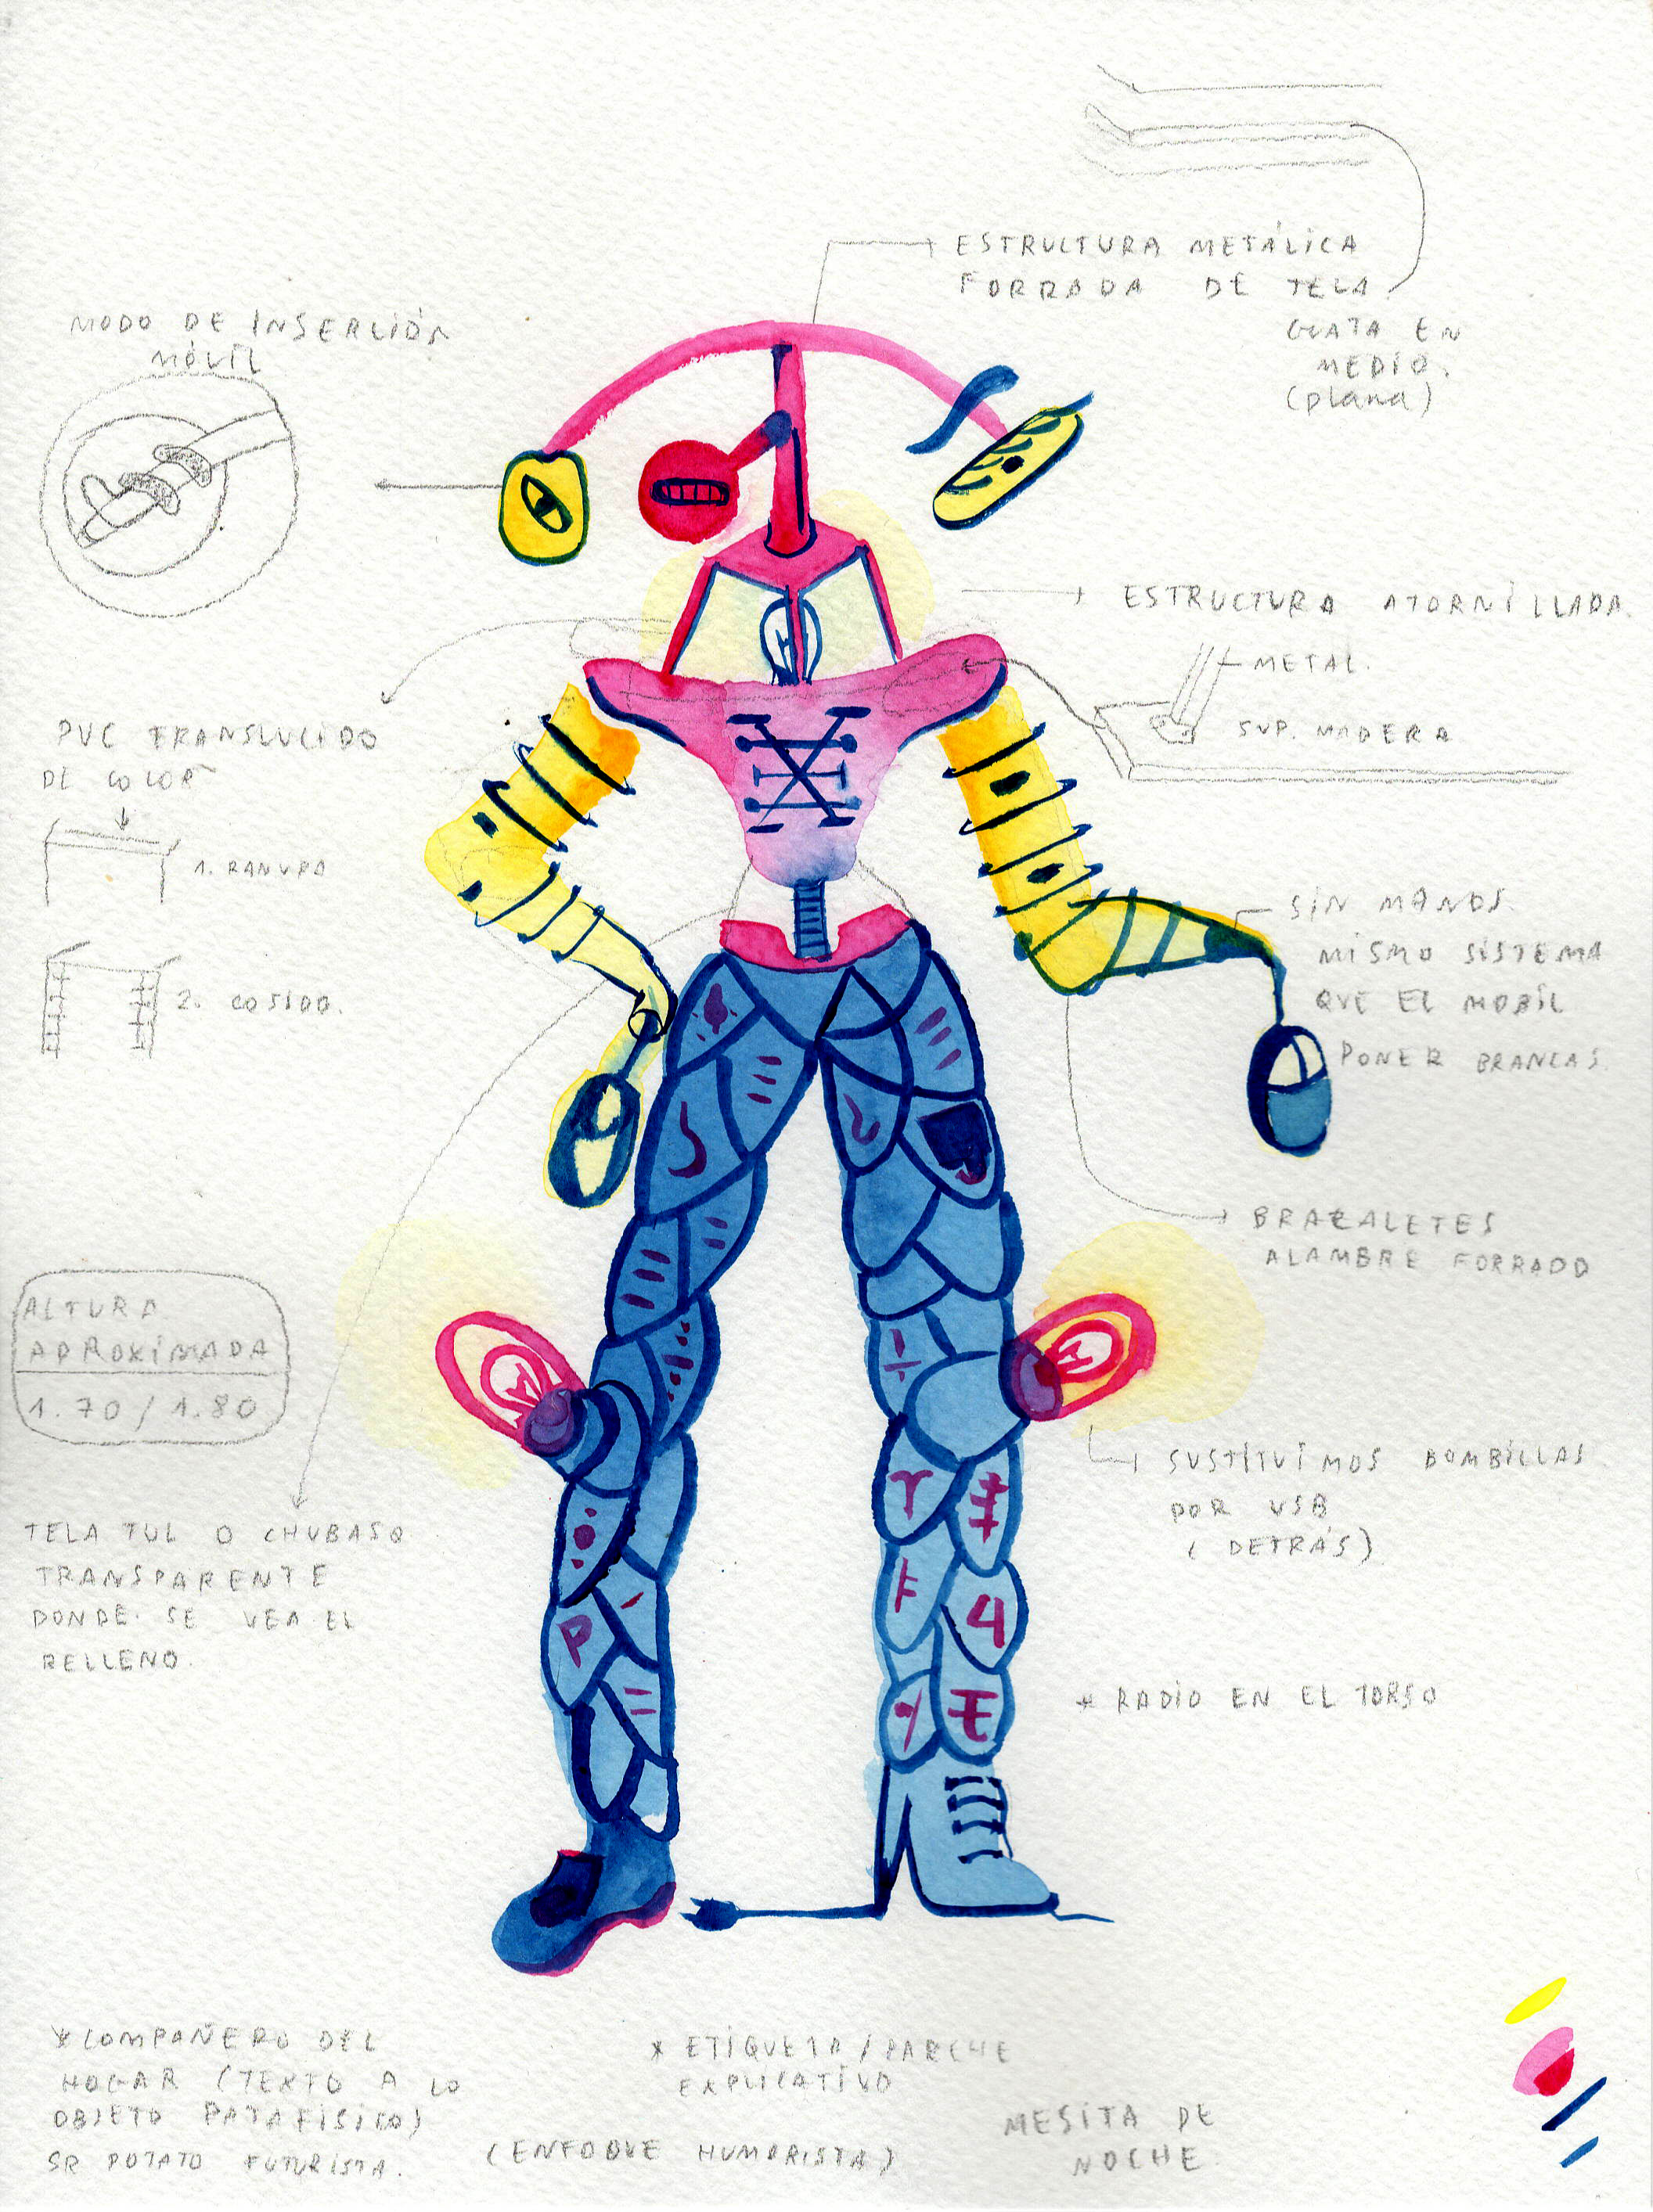 ESTRUCTURA METÁLICA
FORRADA DE TELA
GUATA EN
MEDIO.
(plana)
MODO DE INSERCIÓN
MÓVIL
ESTRUCTURA ATORNILLADA.
METAL.
SUP. MADERA
PVC TRANSLUCIDO
DE COLOR
1. RANURA
2. COSIDO.
SIN MANOS.
MISMO SISTEMA
QUE EL MOBIL
PONER BRANCAS
BRAZALETES
ALAMBRE FORRADO
ALTURA
APROXIMADA
1.70 / 1.80
SUSTITUIMOS BOMBILLAS
POR USB
( DETRÁS)
TELA TUL O CHUBASQ
TRANSPARENTE
DONDE SE VEA EL
RELLENO.
* RADIO EN EL TORSO
* COMPAÑERO DEL
HOGAR (TEXTO A LO
OBJETO PATAFÍSICO)
SR POTATO FUTURISTA.
* ETIQUETA / PARCHE
EXPLICATIVO
(ENFOQUE HUMORISTA)
MESITA DE
NOCHE